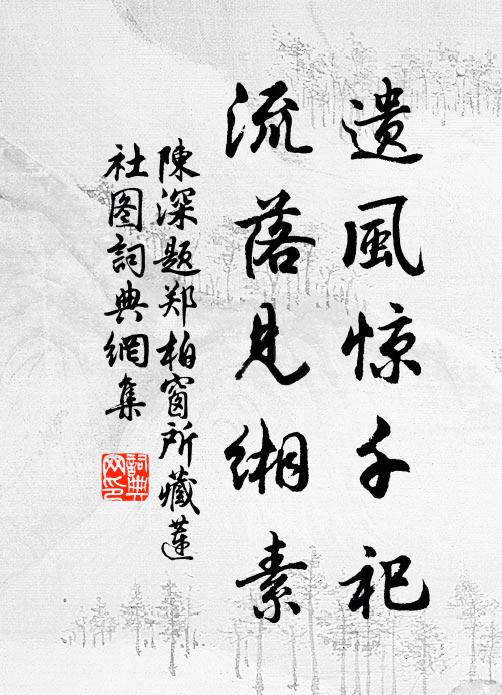 遗風惊千祀
流落見缃素
陳深题郑柏窗所藏蓮
社图詞典網集
詞典
网印